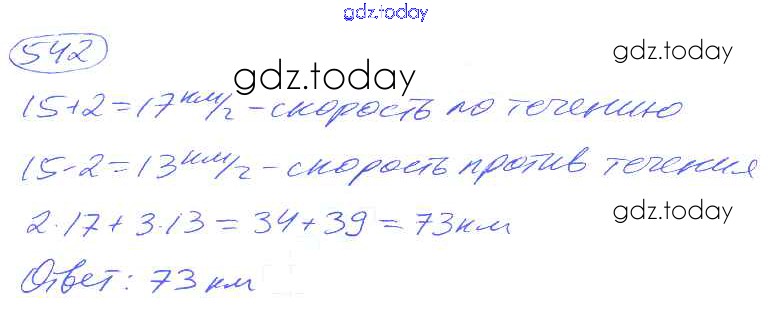 gdz.today
542
gdz.today
gdz.today
15+2=17 км/ч - скорость по течению
15-2=13 км/ч - скорость против течения
2·17+3·13=34+39=73 км
gdz.today
Ответ: 73 км